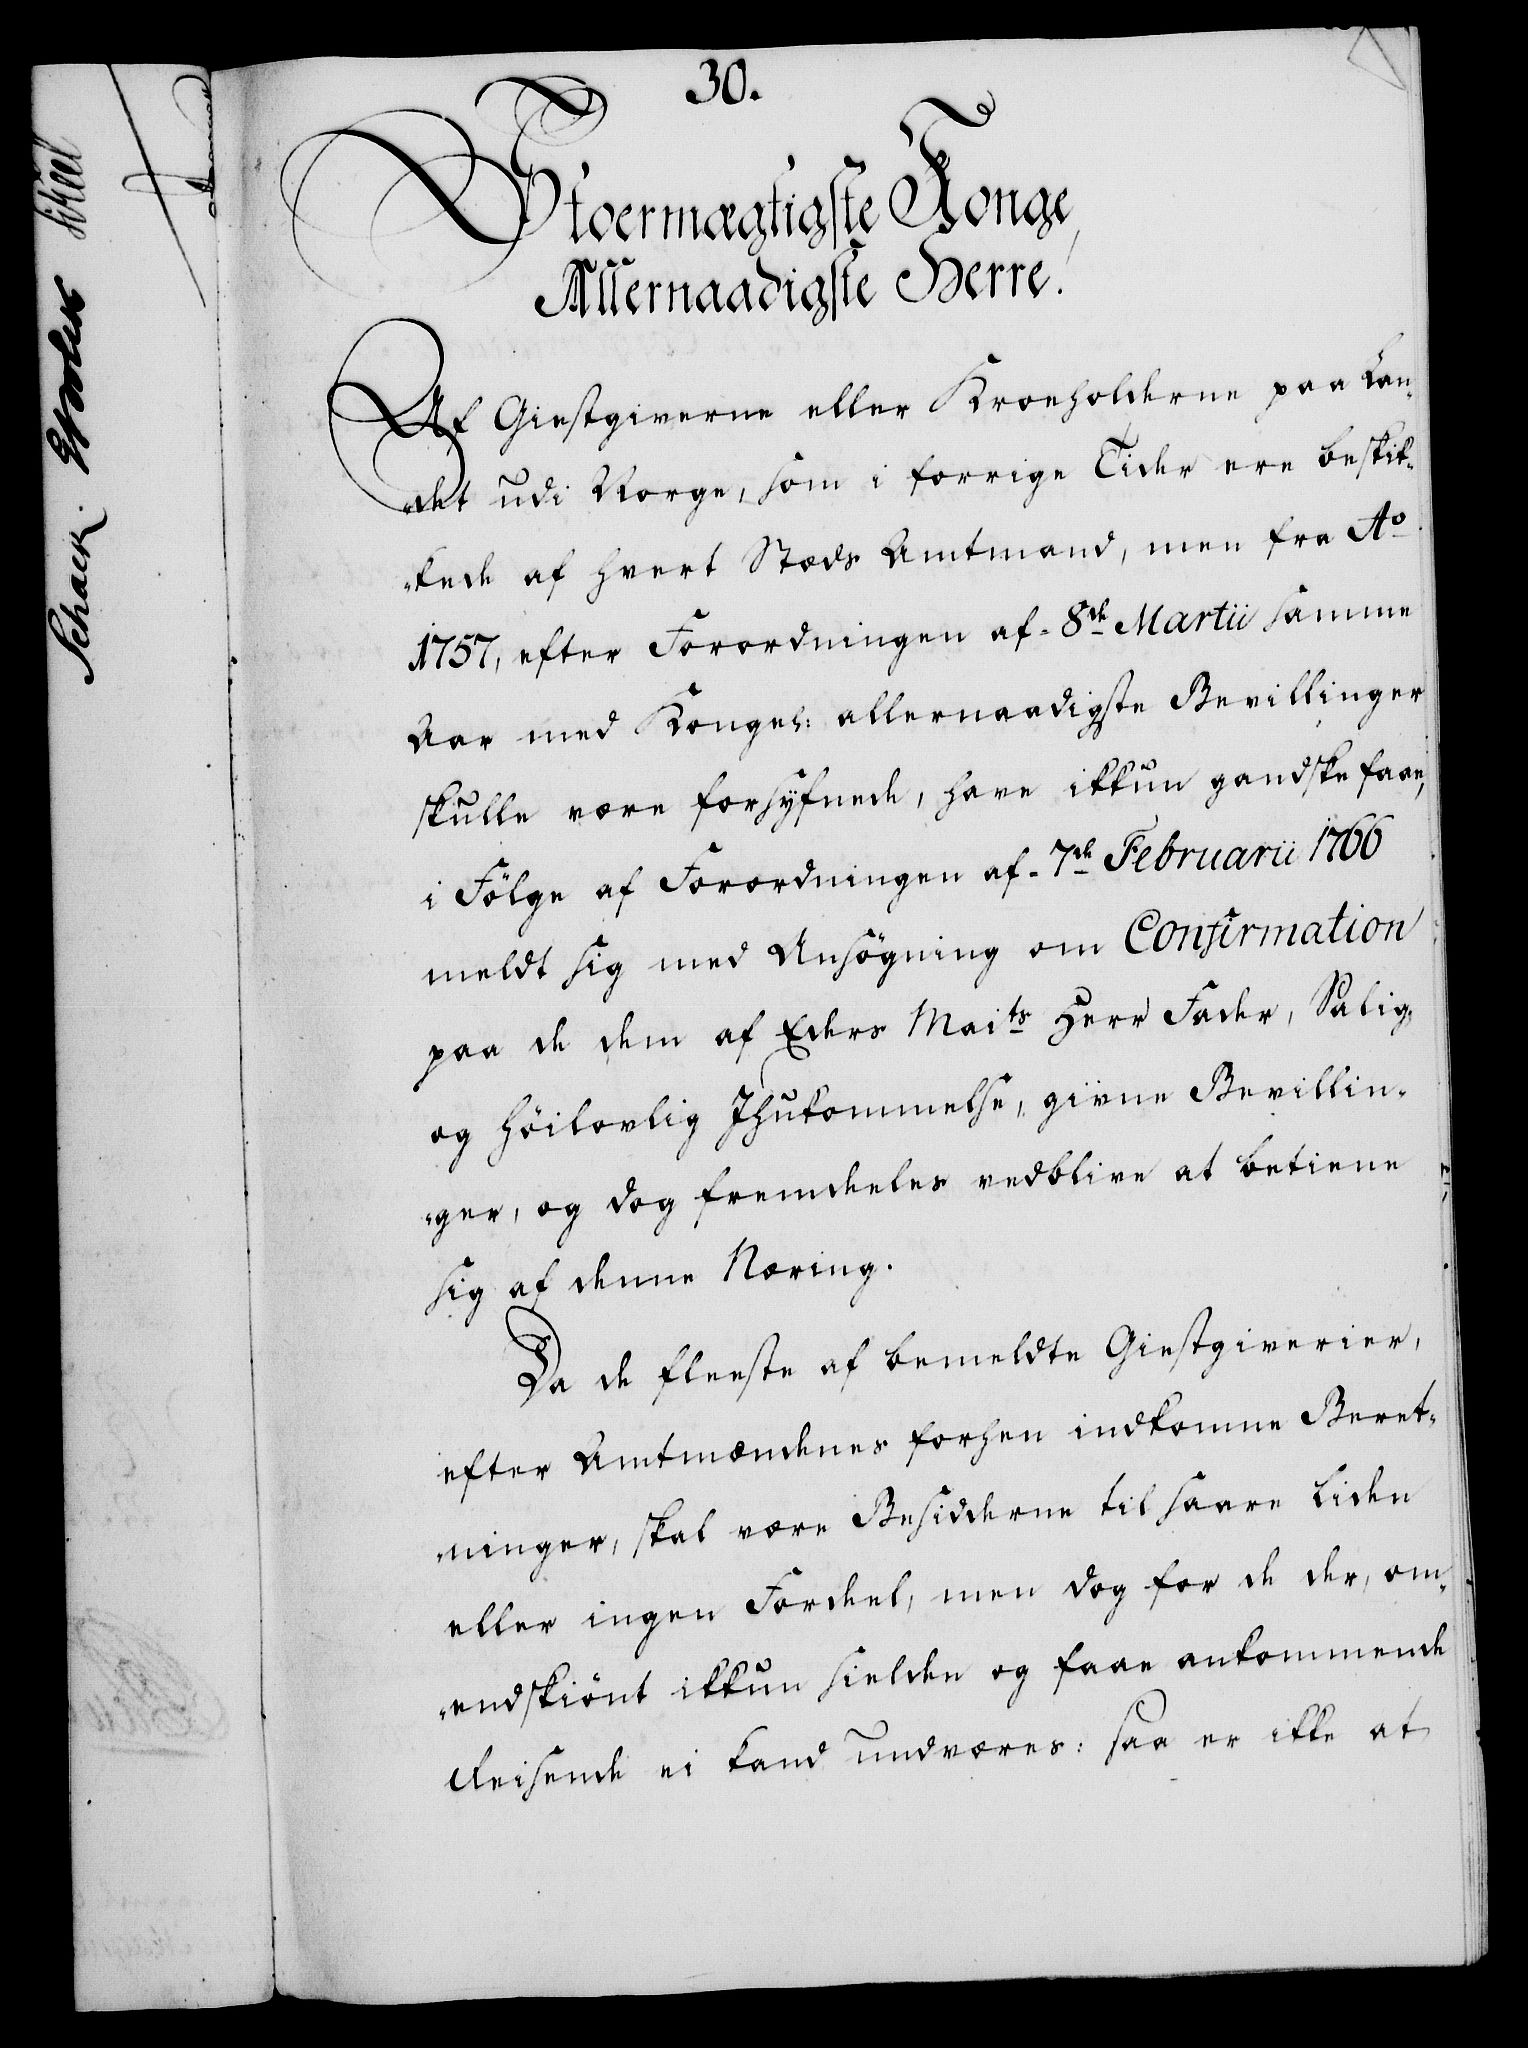 30.
Stoermægtigste Konge,
Allernaadigste Herre!
Af Giestgiverne eller Kroeholderne paa Lan-
-det udi Norge, som i forrige Tider ere beskik-
-kede af hvert Steds Amtmand, men fra Ao
1757, efter Forordningen af 8de Martii samme
Aar med Kongel: allernaadigste Bevillinger
skulle være forsÿfnede, have ikkun gandske faae,
i Fölge af Forordningen af 7de Februarii 1766
meldt sig med Ansögning om Confirmation
paa de dem af Eders Maits Herr Fader, Salig-
og Höilovlig Ihukommelse, givne Bevillin-
-ger, og dog fremdeeles vedblive at betiene
sig af denne Næring.
Da de fleeste af bemeldte Giestgiverier,
efter Amtmændenes forhen indkomne Beret-
-ninger, skal være Besidderne til saare liden
eller ingen Fordeel, men dog for de der, om-
-endskiönt ikkun sielden og faae ankommende
Reisende ei kand undværes: saa er ikke at
Schack